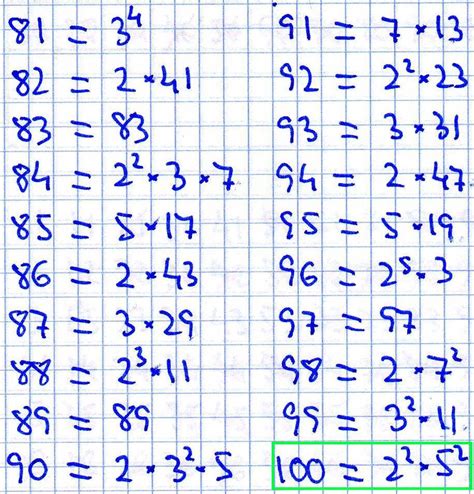 81 = 3⁴
82 = 2 * 41
83 = 83
84 = 2² * 3 * 7
85 = 5 * 17
86 = 2 * 43
87 = 3 * 29
88 = 2³ * 11
89 = 89
90 = 2 * 3² * 5
91 = 7 * 13
92 = 2² * 23
93 = 3 * 31
94 = 2 * 47
95 = 5 * 19
96 = 2⁵ * 3
97 = 97
98 = 2 * 7²
99 = 3² * 11
100 = 2² * 5²